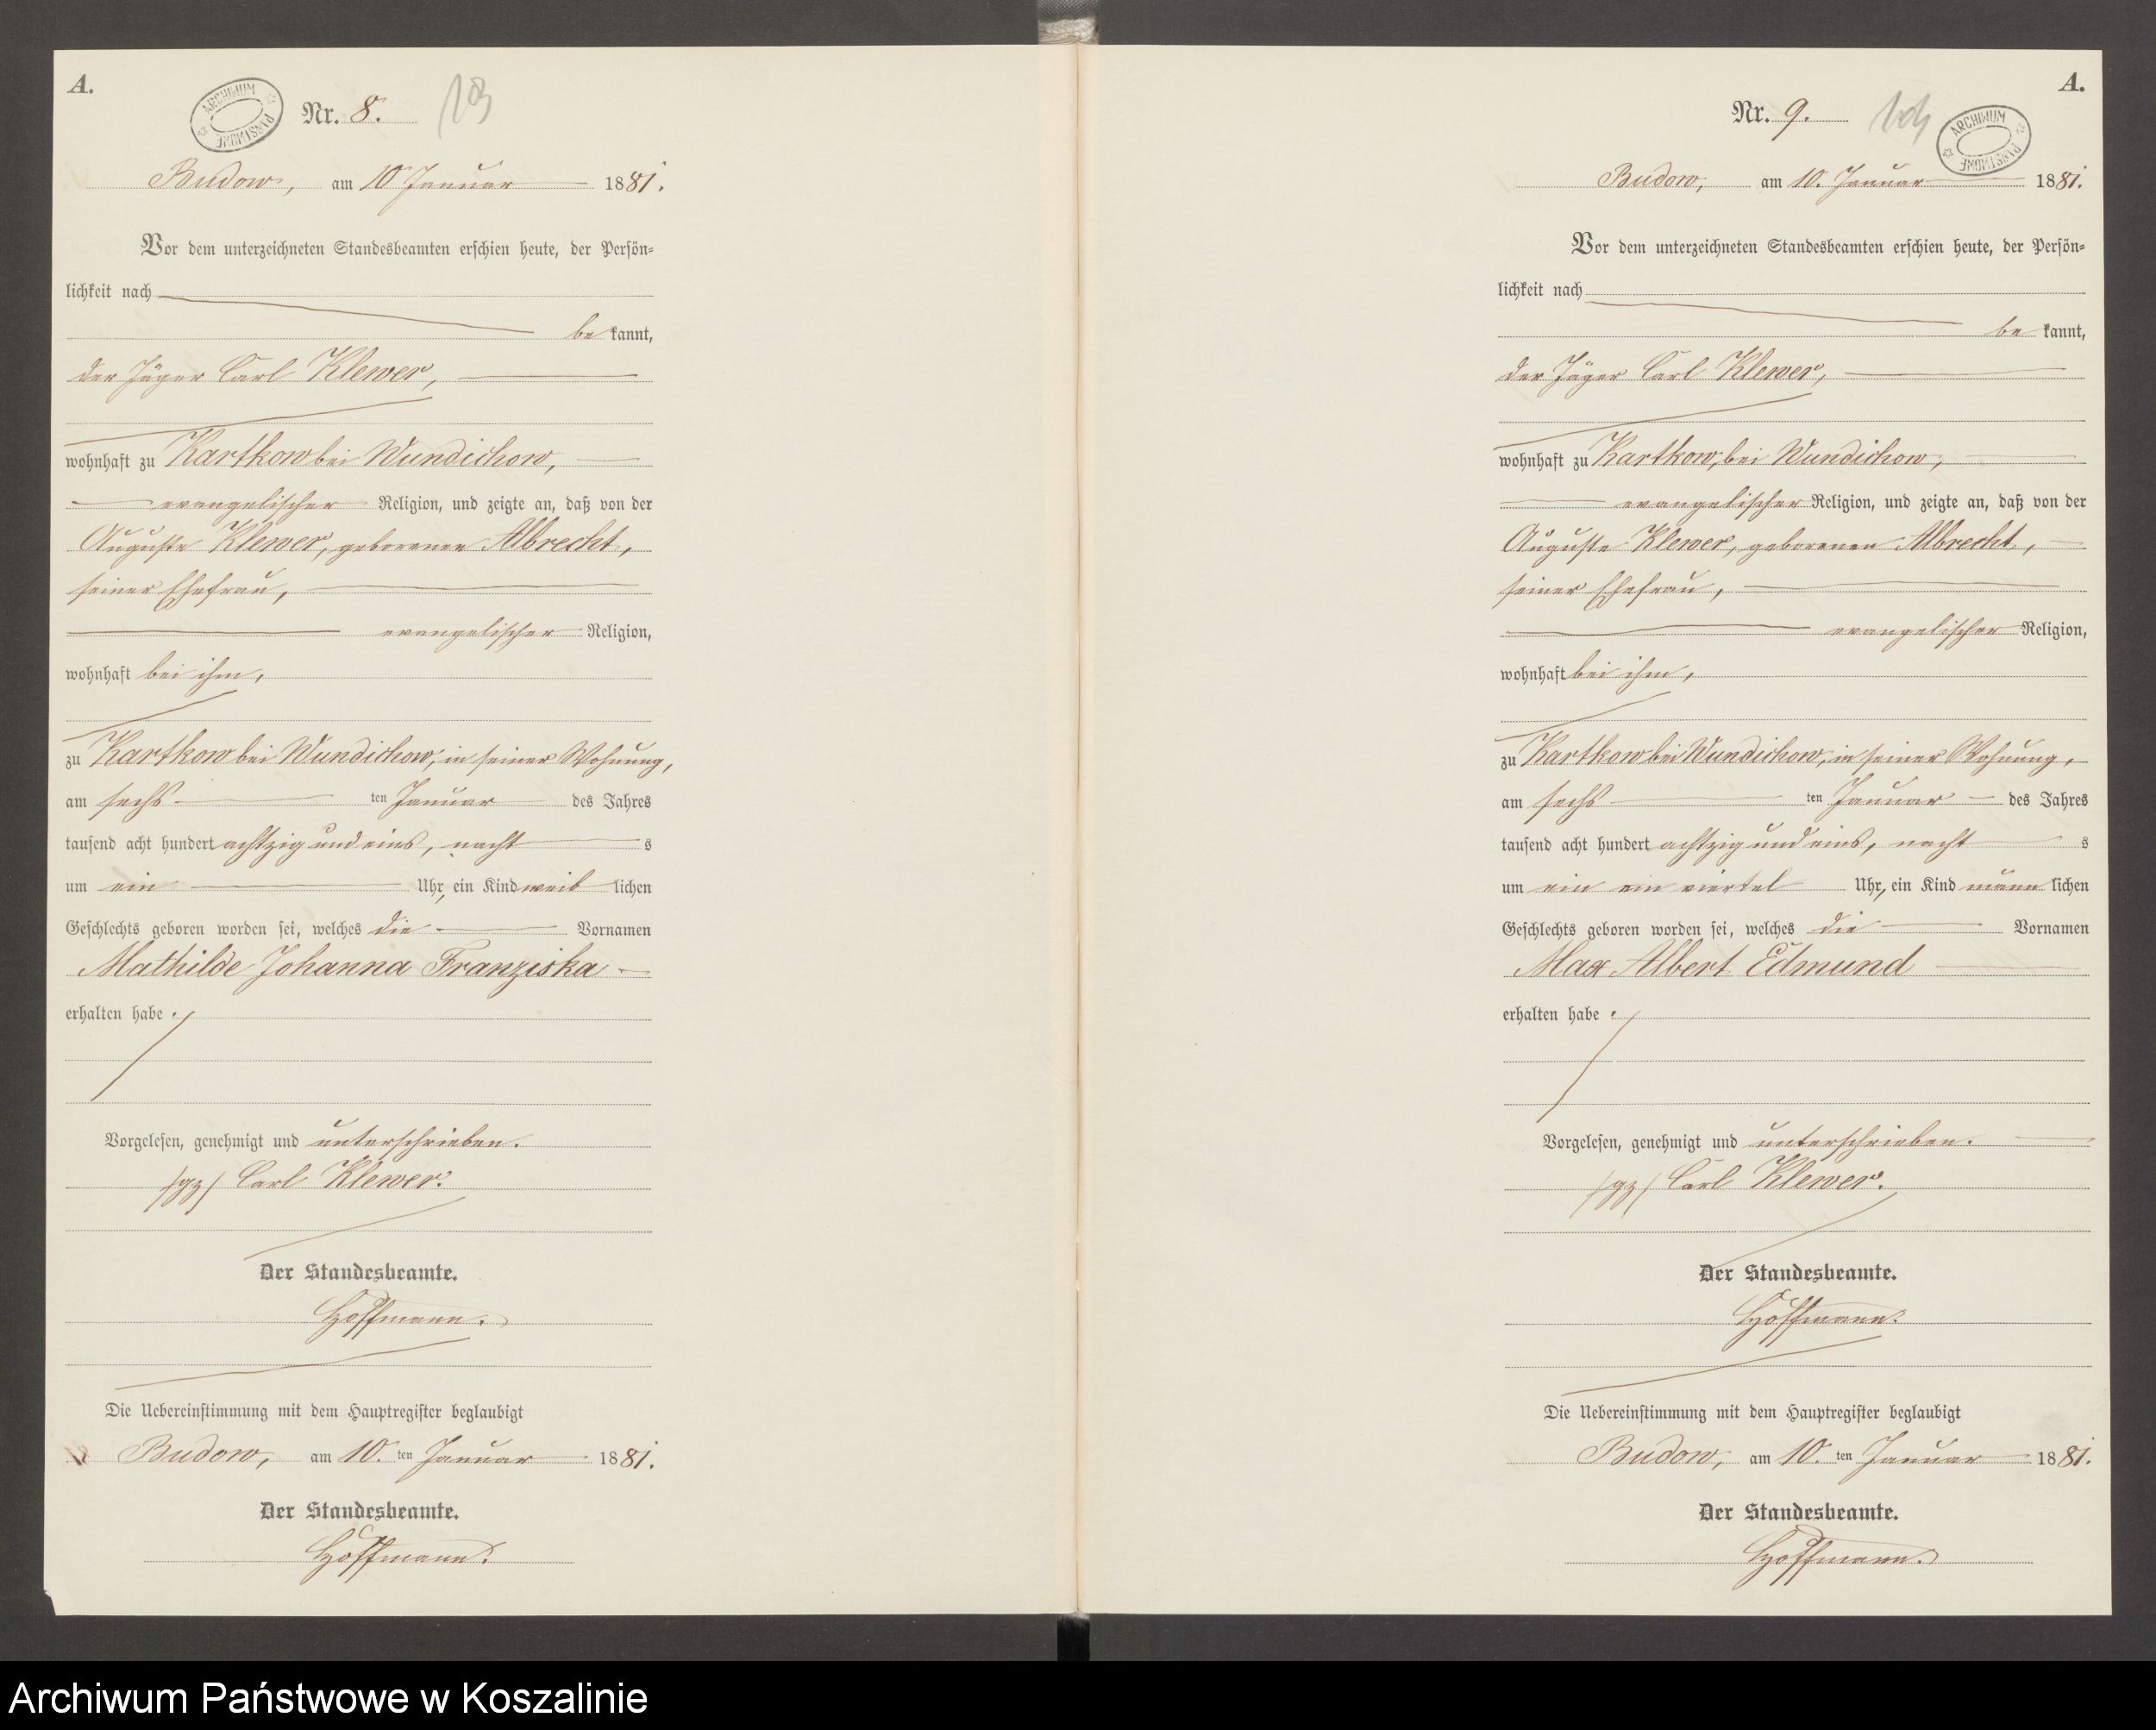 A.
ARCHIWUM PAŃSTWOWE
Nr. 8.
Budow, am 10 Januar 1881.
Vor dem unterzeichneten Standesbeamten erschien heute, der Persön=
lichkeit nach
be kannt,
der Jäger Carl Klewer,
wohnhaft zu Kartkow bei Wundichow,
evangelischer Religion, und zeigte an, daß von der
Auguste Klewer, geborenen Albrecht,
seiner Ehefrau,
evangelischer Religion,
wohnhaft bei ihm,
zu Kartkow bei Wundichow, in seiner Wohnung,
am sechs ten Januar des Jahres
tausend acht hundert achtzig und eins, nacht s
um ein Uhr, ein Kind weib lichen
Geschlechts geboren worden sei, welches die Vornamen
Mathilde Johanna Franziska
erhalten habe.
Vorgelesen, genehmigt und unterschrieben.
/gz/ Carl Klewer.
Der Standesbeamte.
Hoffmann.
Die Uebereinstimmung mit dem Hauptregister beglaubigt
Budow, am 10. ten Januar 1881.
Der Standesbeamte.
Hoffmann.
A.
Nr. 9.
ARCHIWUM PAŃSTWOWE
Budow, am 10. Januar 1881.
Vor dem unterzeichneten Standesbeamten erschien heute, der Persön=
lichkeit nach
be kannt,
der Jäger Carl Klewer,
wohnhaft zu Kartkow, bei Wundichow,
evangelischer Religion, und zeigte an, daß von der
Auguste Klewer, geborenen Albrecht,
seiner Ehefrau,
evangelischer Religion,
wohnhaft bei ihm,
zu Kartkow bei Wundichow, in seiner Wohnung,
am sechs ten Januar des Jahres
tausend acht hundert achtzig und eins, nacht s
um ein ein viertel Uhr, ein Kind männ lichen
Geschlechts geboren worden sei, welches die Vornamen
Max Albert Edmund
erhalten habe.
Vorgelesen, genehmigt und unterschrieben.
/gz/ Carl Klewer.
Der Standesbeamte.
Hoffmann.
Die Uebereinstimmung mit dem Hauptregister beglaubigt
Budow, am 10. ten Januar 1881.
Der Standesbeamte.
Hoffmann.
Archiwum Państwowe w Koszalinie